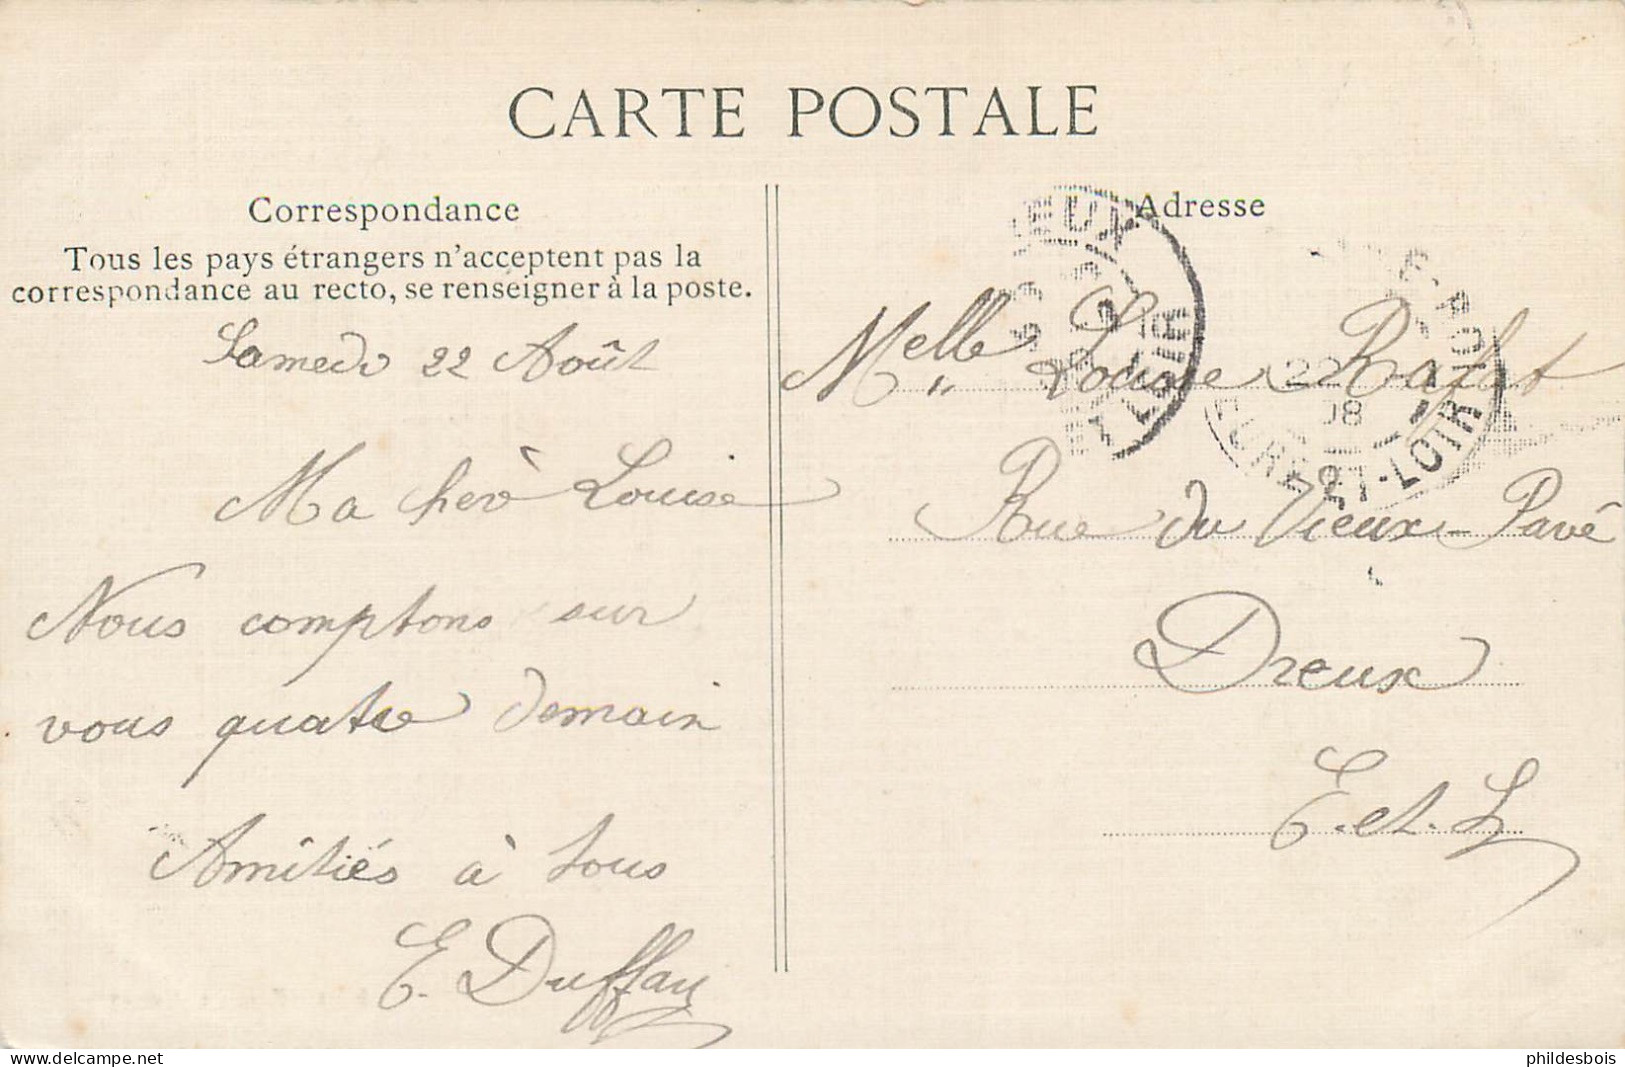 CARTE POSTALE
Correspondance
Tous les pays étrangers n'acceptent pas la
correspondance au recto, se renseigner à la poste.
Samedi 22 Août
Ma cherè Louise
Nous comptons sur
vous quatre demain
Amitiés à tous
E. Duffay
Adresse
Melle Louise Rafat
Rue du Vieux-Pavé
Dreux
E.et.L
EUX
LOIR
22
08
EURE-ET-LOIR
phildesbois
delcampe.net